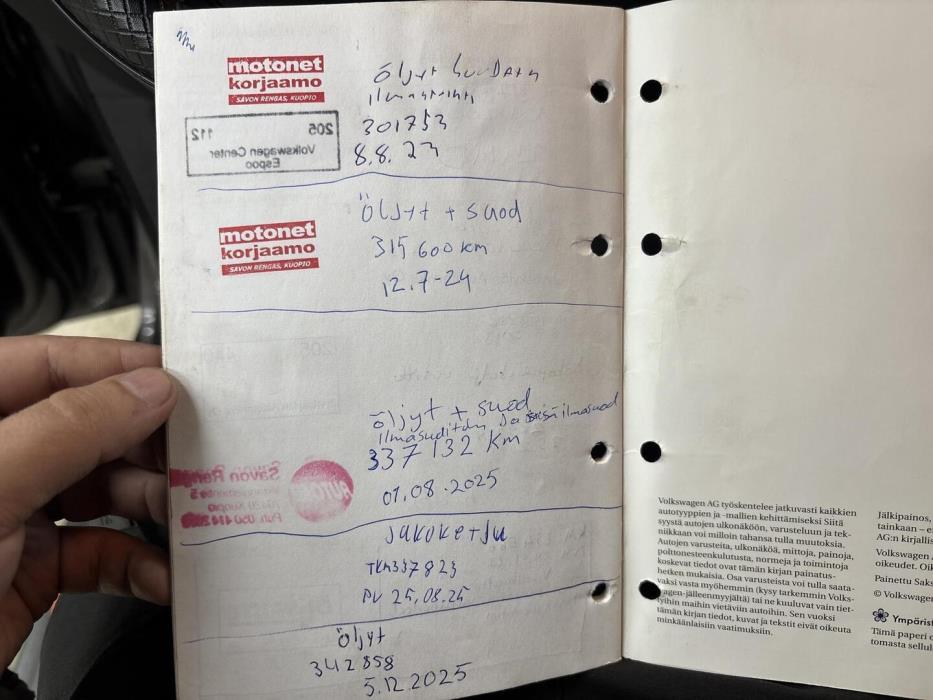 motonet
korjaamo
SAVON RENGAS, KUOPIO
Öljyt
301753
8.8.23
205 112
Volkswagen Center
Espoo
motonet
korjaamo
SAVON RENGAS, KUOPIO
Öljyt + suod
315 600 km
12.7-24
öljyt + suod
ilmasuod
337132 km
01.08.2025
Savon
AUTO
Kuopio
Puh.
Jakoketju
Tkm337823
PV 25.08.25
öljyt
342858
5.12.2025
Volkswagen AG työskentelee jatkuvasti kaikkien
autotyyppien ja -mallien kehittämiseksi Siitä
syystä autojen ulkonäköön, varusteluun ja tek-
niikkaan voi milloin tahansa tulla muutoksia.
Autojen varusteita, ulkonäköä, mittoja, painoja,
polttonesteenkulutusta, normeja ja toimintoja
koskevat tiedot ovat tämän kirjan painatus-
hetken mukaisia. Osa varusteista voi tulla saata-
vaksi vasta myöhemmin (kysy tarkemmin Volks-
wagen-jälleenmyyjältä) tai ne kuuluvat vain tiet-
tyihin maihin vietäviin autoihin. Sen vuoksi
tämän kirjan tiedot, kuvat ja tekstit eivät oikeuta
minkäänlaisiin vaatimuksiin.
Jälkipainos,
tainkaan – e
AG:n kirjallis
Volkswagen
oikeudet. Oik
Painettu Saks
© Volkswagen
Ympärist
Tämä paperi o
tomasta sellul